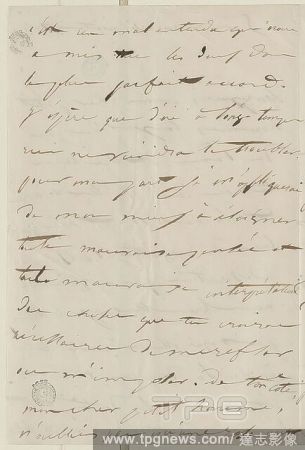 C'est un malentendu qui nous
a mis tous les deux dans
le plus parfait accord.
J'espère que d'ici à long temps
rien ne viendra le troubler
pour ma part je m'appliquerai
de mon mieux à éloigner
toute mauvaise pensée et
toute mauvaise interprétation
des choses que tu croiras
nécessaires de
ou m'imposer. De ton côté
mon cher petit homme,
n'oublies
TPG
www.tpgnews.com 達志影像